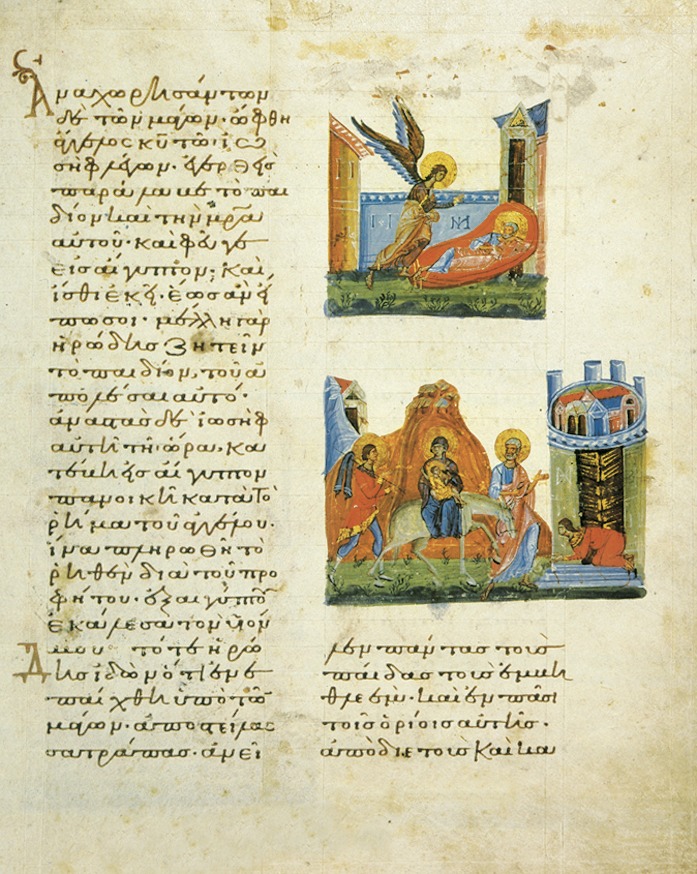 Ἀναχωρησάντων
δὲ τῶν μάγων· ὤφθη
ἄγγελος κυ τῶ ἰω
σὴφ λέγων· ἐγερθεὶς
παράλαβε τὸ παι
δίον καὶ τὴν μρα
αὐτοῦ· καὶ φεῦγε
εἰς αἴγυπτον· καὶ
ἴσθι ἐκεῖ· ἕως ἂν εἴ
πω σοι· μέλλει γὰρ
ἡρώδης ζητεῖν
τὸ παιδίον, τοῦ ἀ
πολέσαι αὐτό·
ἀναστὰς δὲ ἰωσὴφ
αὐτῆ τῆ ὥρα, κα
εἰς αἴγυπτον
κατὰ τὸ
ῥῆμα τοῦ ἀγγέλου·
ἵνα πληρωθῆ τὸ
ῥηθὲν διὰ τοῦ προ
φήτου· ἐξ αἰγύπτου
ἐκάλεσα τὸν υἱόν
μου τότε ἡρώ
δης ἰδὼν ὅτι ἐνε
παίχθη ὑπὸ τῶν
μάγων· ἀποστείλας
σατράπας· ἀνεῖ
λεν πάντας τοὺς
παῖδας τοὺς ἐν βη
θλεὲμ· καὶ ἐν πᾶσι
τοῖς ὁρίοις αὐτῆς·
ἀπὸ διετοῦς καὶ κα